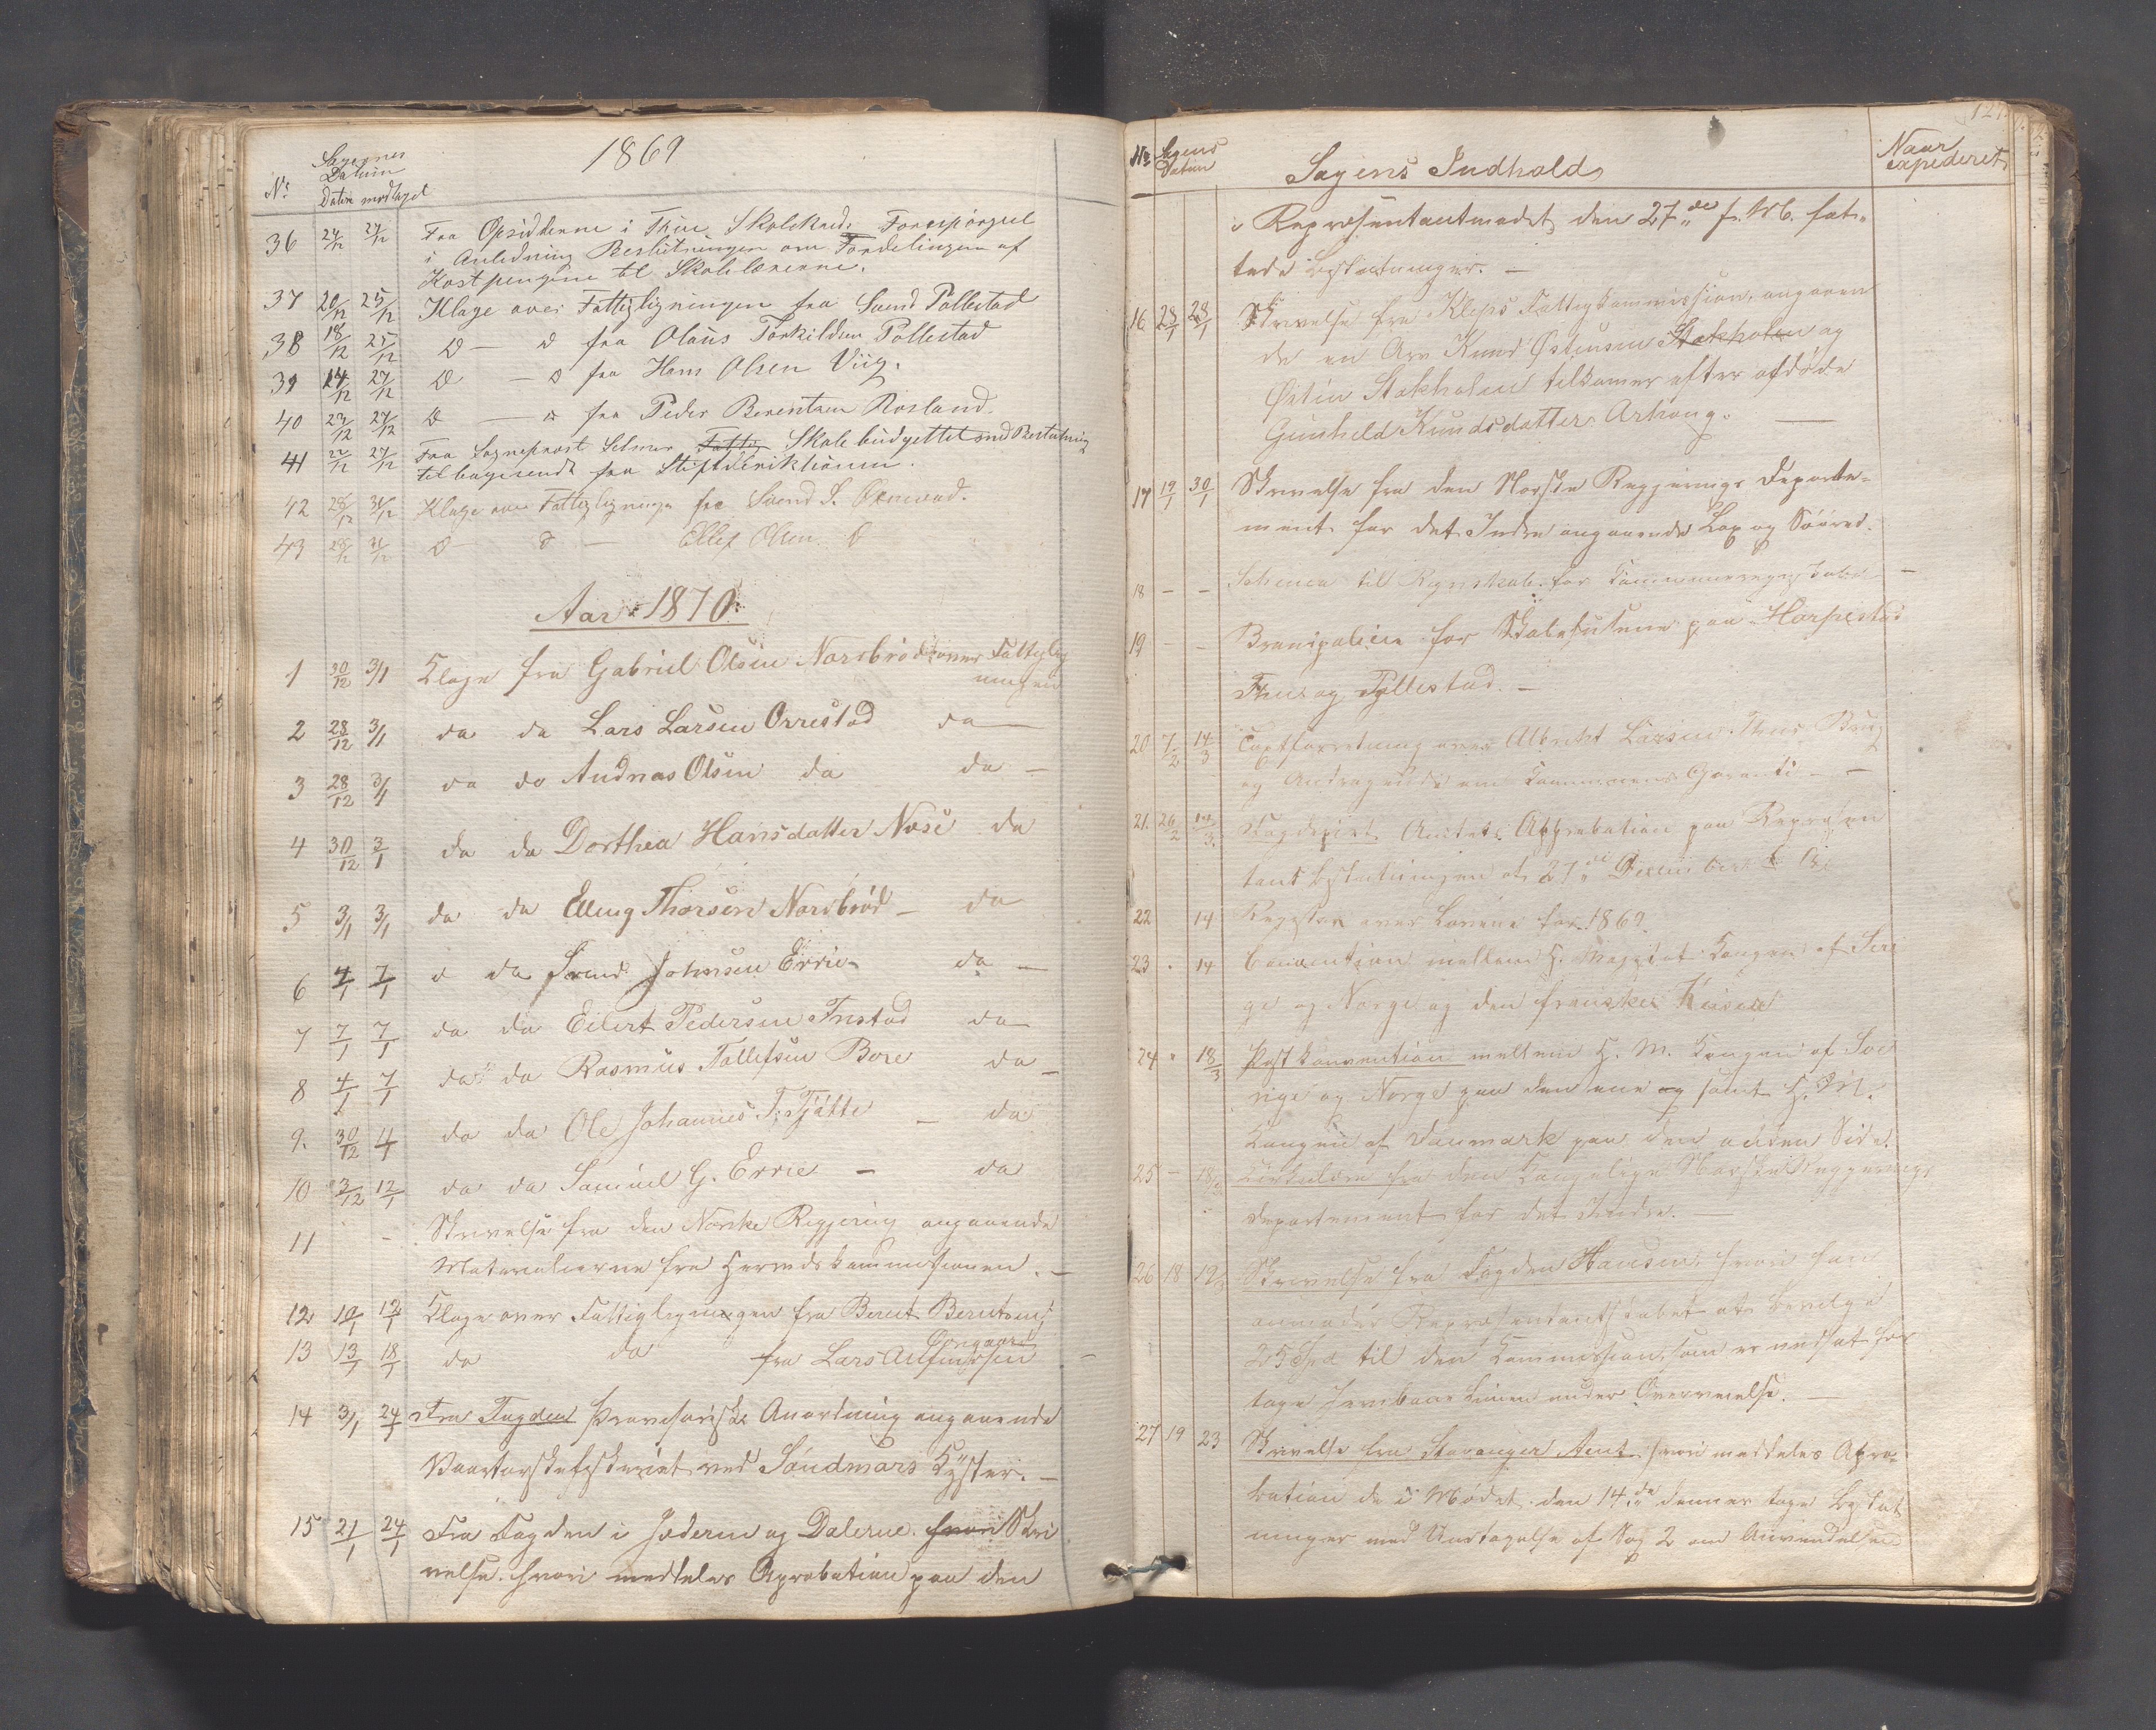 1869
No Sagernes Datum
Datum modtaget
36 24/12 27/12 Fra Opsidderne i Thu Skolekreds Forespörgsel
i Anledning Beslutningen om Fordelingen af
Kostpengene til Skolelærerne.
37 20/12 25/12 Klage over Fattigligningen fra Svend Pollestad
38 18/12 25/12 D — D fra Olaus Torkildsen Pollestad
39 14/12 27/12 D — D fra Hans Olsen Viig.
40 23/12 27/12 D — D fra Peder Berentsen Rosland.
41 22/12 27/12 Fra Sogneprest Selmer Skolebudgettet med Beslutning
tilbagesendt fra Stiftdirektionen.
42 28/12 31/12 Klage over Fattigligningen fra Svend S.
43 28/12 31/12 D — D — Ellef Olsen D
Aar 1870.
1 30/12 3/1 Klage fra Gabriel Olsen Nordbrød over Fattiglig
ningen
2 28/12 3/1 do do Lars Larsen Orrestad do —
3 28/12 3/1 do do Andreas Olsen do do —
4 30/12 3/1 do do Dorthea Hansdatter Næse do
5 3/1 3/1 do do Elling Thorsen Nordbrød — do
6 4/1 7/1 d do Svend Johnsen Errie do —
7 7/1 7/1 do do Eilert Pedersen Friestad do
8 4/1 7/1 do do Rasmus Tollefsen Bore do —
9. 30/12 4 do do Ole Johannes T. Tjøtte — do
10 3/12 12/1 do do Samuel G. Errie — do
11 - Skrivelse fra den Norske Regjering angaaende
Matrialierne fra Herredskommissionen. —
12 10/1 12/1 Klage over Fattigligningen fra Bernt Berntsen
13 13/1 18/1 do do fra Lars —
14 3/1 24/1 Fra Fogden Provisorisk Anordning angaaende
Vaartorskefiskeriet ved Söndmørs Kyster. —
15 21/1 24/1 Fra Fogden i Jæderen og Dalerne. hvori Skri
velse hvori meddeles Aprobation paa den
No Sagens Datum Sagens Indhold Naar expederet
i Repræsentantmødet den 27de f. M. fat-
tede Beslutninger. —
16 28/1 28/1 Skrivelse fra Kleps Fattigkommission, angaaen
de en Arv Knud Østensen Stokholen og
Østen Stokholen tilkommer efter afdøde
Gunheld Knudsdatter —
17 19/1 30/1 Skrivelse fra den Norske Regjerings Departe-
ment for det Indre angaaende Lax og Söörred.
18 — — Schema til Regnskab for —
19 — — Brandpolicen for Skolehusene paa Horpestad
Thu og Pollestad. —
20 7/2 14/3 Taxtforretning over Albrekt Larsen Thus Brug
og Andragende om Kommunens Garanti — —
21. 26/2 14/3. Amtets Approbation paa Repræsen
tant Beslutningen af 27de December f. A.
22 14 Register over Lovene for 1869.
23 . 14 Convention mellem H. Majestæt Kongen af Sver
ge og Norge og den franske Keiser
24 " 18/3 Postkonvention mellem H. M. Kongen af Sve
rige og Norge paa den ene og samt H. M.
Kongen af Danmark paa den anden Side.
25 — 18/3 Cirkulære fra den Kongelige Norske Regjerings
Departement for det Indre. —
26 18 19/3 Skrivelse fra Fogden Hansen, hvori han
anmoder Repræsentantskabet at bevilge
25 Spd til den Kommission, som er nedsat for
tage Jernbane Linien under Overveielse. —
27 19 23 Skrivelse fra Stavanger Amt hvori meddeles Apro-
bation de i Mødet den 14de dennes tagne Beslut
ninger med Undtagelse af Sag 2 om Anvendelsen